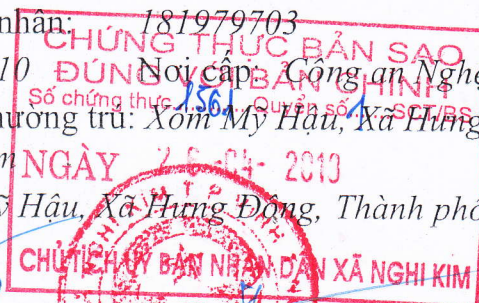 nhân: 181979703
CHỨNG THỰC BẢN SAO
10 Nơi cấp: Công an Nghệ
ĐÚNG VỚI BẢN CHÍNH
Số chứng thực 1561 Quyển số 1 SCT/BS
hường trú: Xóm Mỹ Hậu, Xã Hưng
NGÀY 26 -04- 2010
ỹ Hậu, Xã Hưng Đông, Thành phố
CHỦ TỊCH ỦY BAN NHÂN DÂN XÃ NGHI KIM